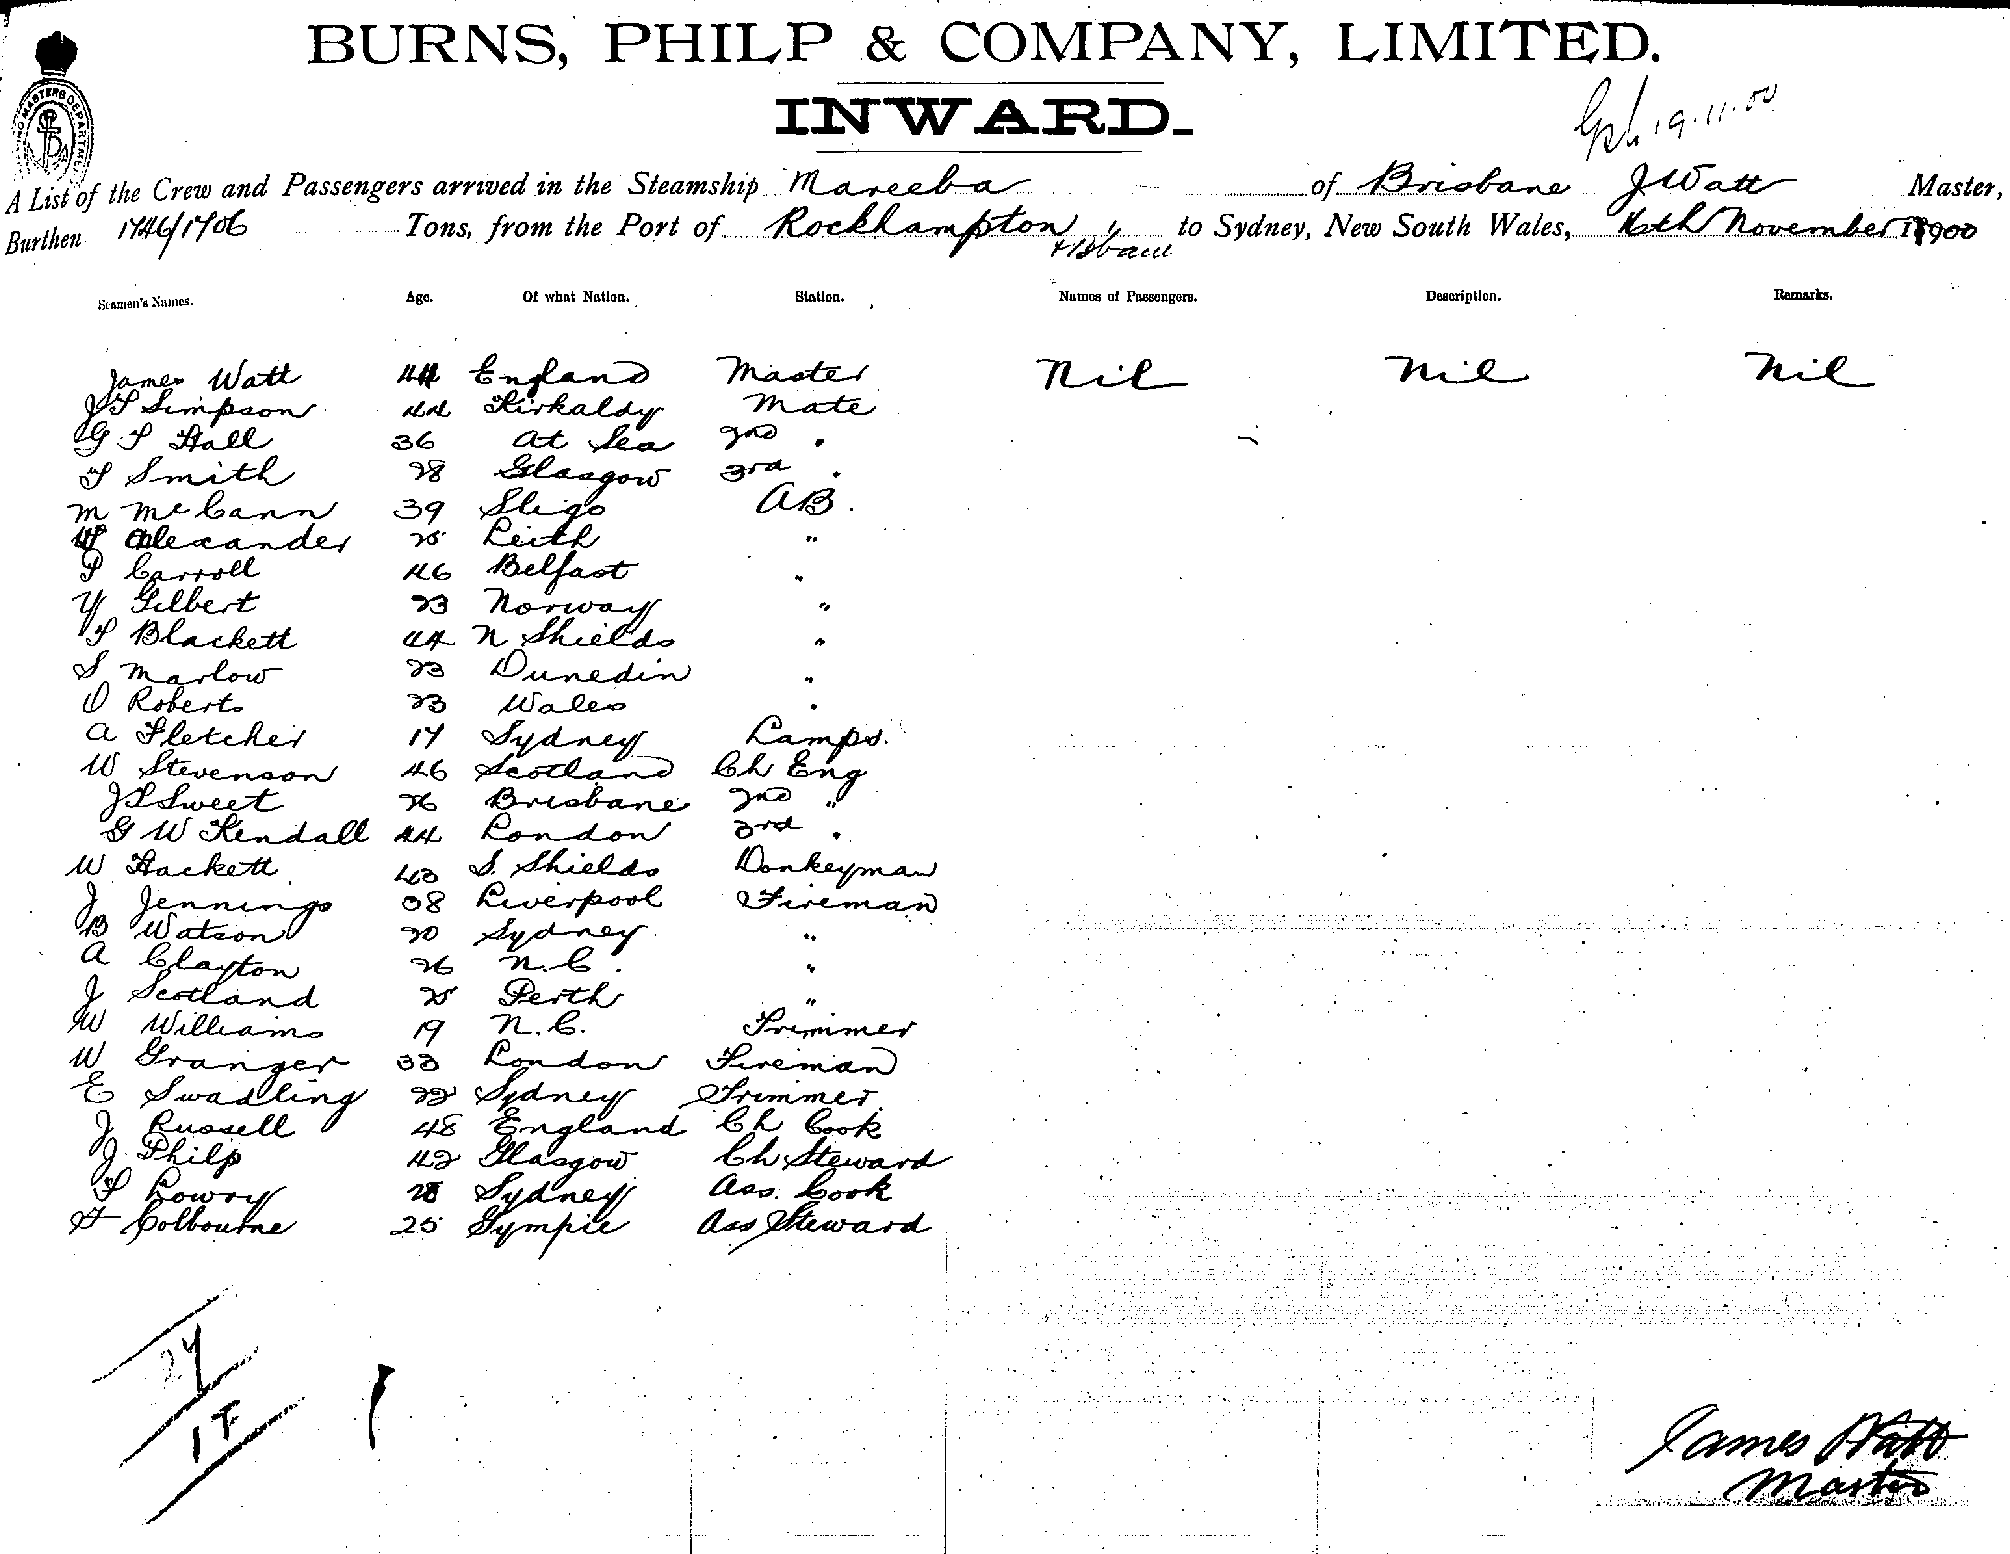 BURNS, PHILP & COMPANY, LIMITED.
INWARD.
19.11.00
A List of the Crew and Passengers arrived in the Steamship Mareeba of Brisbane J Watt Master,
Burthen 1746/1706 Tons, from the Port of Rockhampton to Sydney, New South Wales, 16th November 1900
Seamen's Names. Age. Of what Nation. Station. Names of Passengers. Description. Remarks.
James Watt 44 England Master Nil Nil Nil
J T Simpson 44 Kirkaldy Mate
G T Hall 36 at Sea 2nd "
T Smith 28 Glasgow 3rd "
M McCann 39 Sligo AB.
Alexander 25 Leith "
P Carroll 46 Belfast "
Y Gilbert 23 Norway "
T Blackett 44 N Shields "
S Marlow 23 Dunedin "
O Roberts 23 Wales "
A Fletcher 17 Sydney Lamps.
W Stevenson 46 Scotland Ch Eng
J L Sweet 26 Brisbane 2nd "
G W Kendall 44 London 3rd "
W Hackett 43 S. Shields Donkeyman
J Jennings 38 Liverpool Fireman
B Watson 20 Sydney "
A Clayton 26 N.C. "
J Scotland 25 Perth "
W Williams 19 N.C. Trimmer
W Granger 33 London Fireman
E Swadling 22 Sydney Trimmer
J Russell 48 England Ch Cook
J Philp 42 Glasgow Ch Steward
T Lowry 28 Sydney Ass. Cook
F Colbourne 25 Gympie Ass Steward
27
17
James Watt
Master